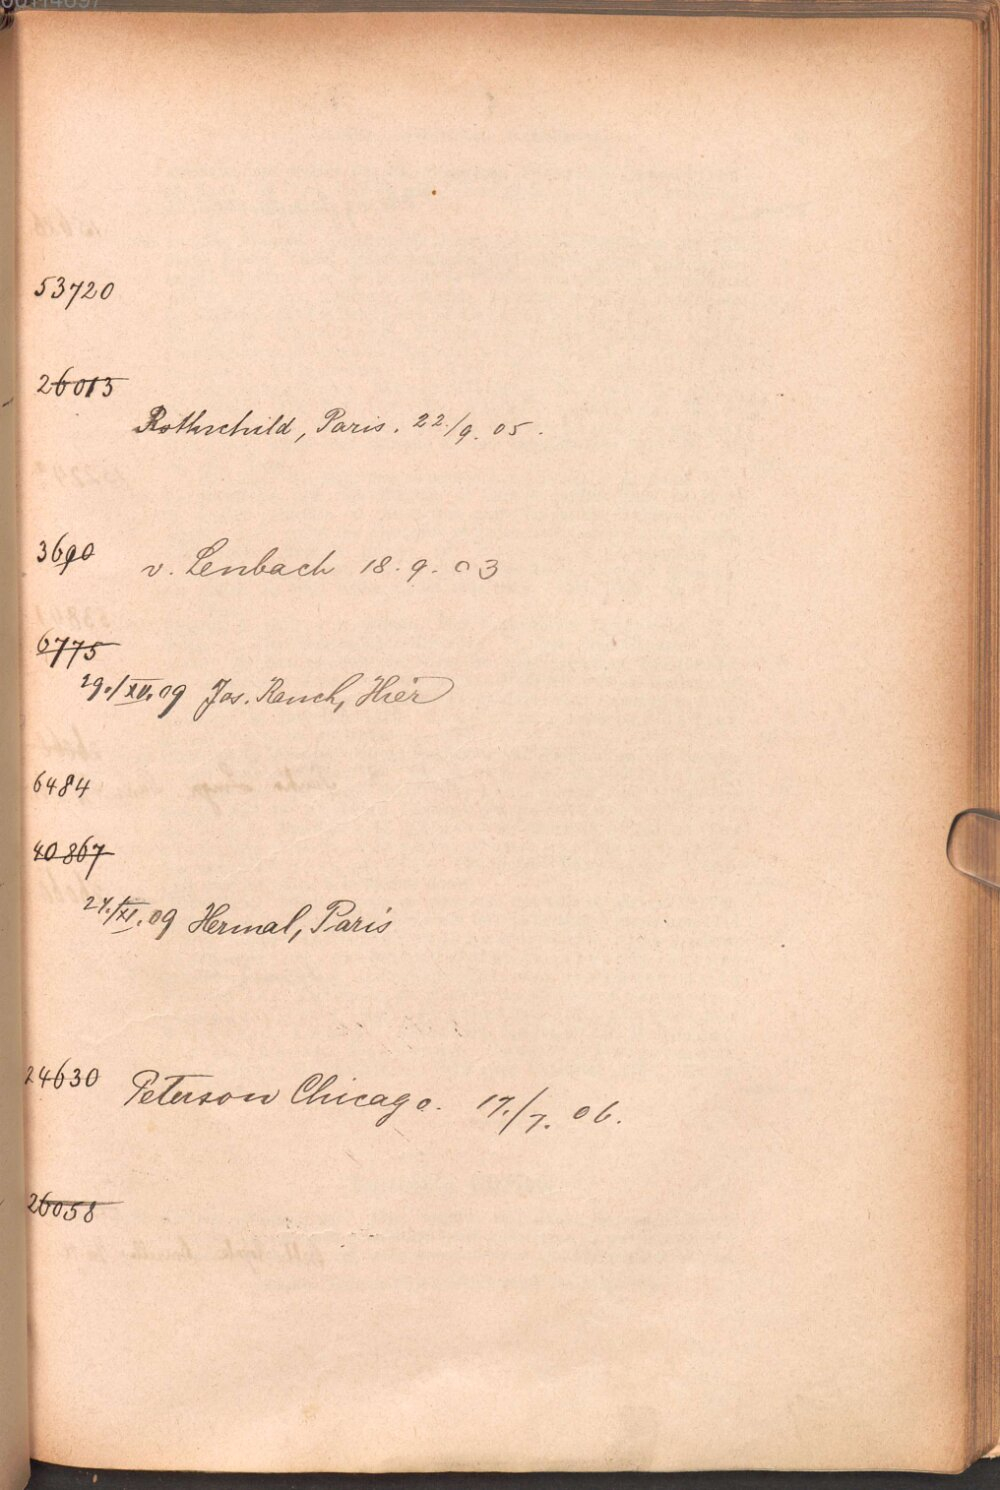 53720
26013
Rothschild, Paris. 22./9. 05.
3690 v. Lenbach 18. 9. 03
6775
Jos. Rauch, Hier
6484
40867
Hermal, Paris
24630 Peterson Chicago. 17./7. 06.
26058